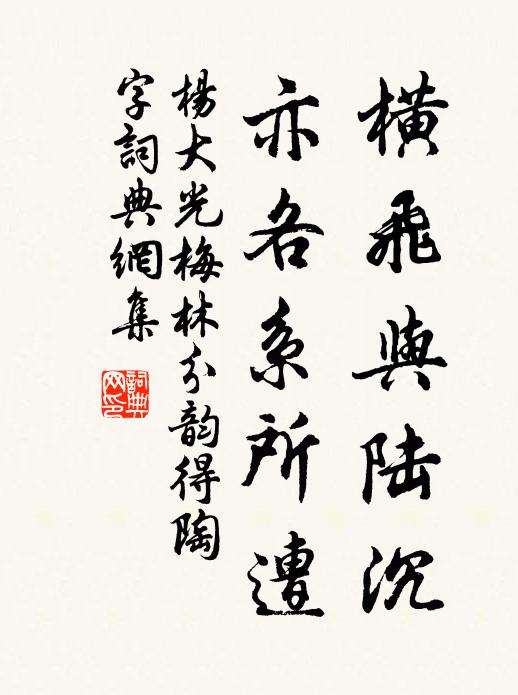 橫飛與陸沉
亦各系所遭
楊大光梅林分韵得陶
字詞典網集
詞典网印